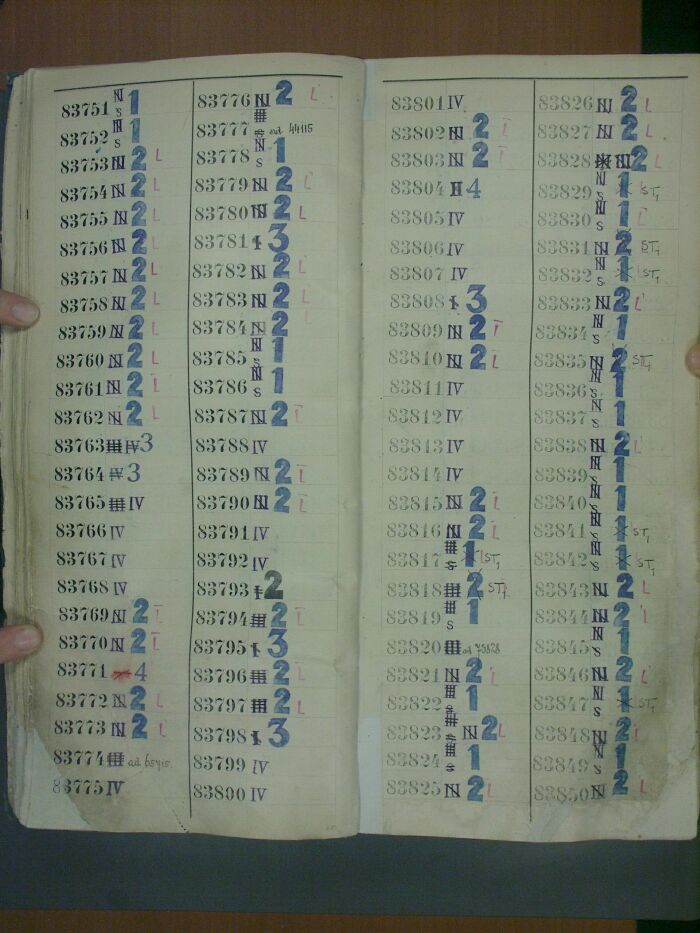 83751 N S 1
83752 N S 1
83753 N 2 L
83754 N 2 L
83755 N 2 L
83756 N 2 L
83757 N 2 L
83758 N 2 L
83759 N 2 L
83760 N 2 L
83761 N 2 L
83762 N 2 L
83763 IV 3
83764 IV 3
83765 IV
83766 IV
83767 IV
83768 IV
83769 N 2 L
83770 N 2 L
83771 4
83772 N 2 L
83773 N 2 L
83774 ad
83775 IV
83776 N 2 L
83777 ad 44115
83778 N S 1
83779 N 2 L
83780 N 2 L
83781 I 3
83782 N 2 L
83783 N 2 L
83784 N 2 L
83785 N S 1
83786 N S 1
83787 N 2 L
83788 IV
83789 N 2 L
83790 N 2 L
83791 IV
83792 IV
83793 I 2
83794 2 L
83795 I 3
83796 2 L
83797 2 L
83798 I 3
83799 IV
83800 IV
83801 IV
83802 N 2 L
83803 N 2 L
83804 4
83805 IV
83806 IV
83807 IV
83808 I 3
83809 N 2 L
83810 N 2 L
83811 IV
83812 IV
83813 IV
83814 IV
83815 N 2 L
83816 N 2 L
83817 S 1 ST1
83818 2 ST1
83819 S 1
83820 ad
83821 N 2 L
83822 S 1
83823 N 2 L
83824 S 1
83825 N 2 L
83826 N 2 L
83827 N 2 L
83828 N 2 L
83829 N S 1 ST1
83830 N S 1 L
83831 N 2 ST1
83832 N S 1 ST1
83833 N 2 L
83834 N S 1
83835 N 2 ST1
83836 N S 1
83837 N S 1
83838 N 2 L
83839 N S 1
83840 N S 1
83841 N S 1 ST1
83842 N S 1 ST1
83843 N 2 L
83844 N 2 L
83845 N S 1
83846 N 2 L
83847 N S 1 ST1
83848 N 2 L
83849 N S 1
83850 N 2 L